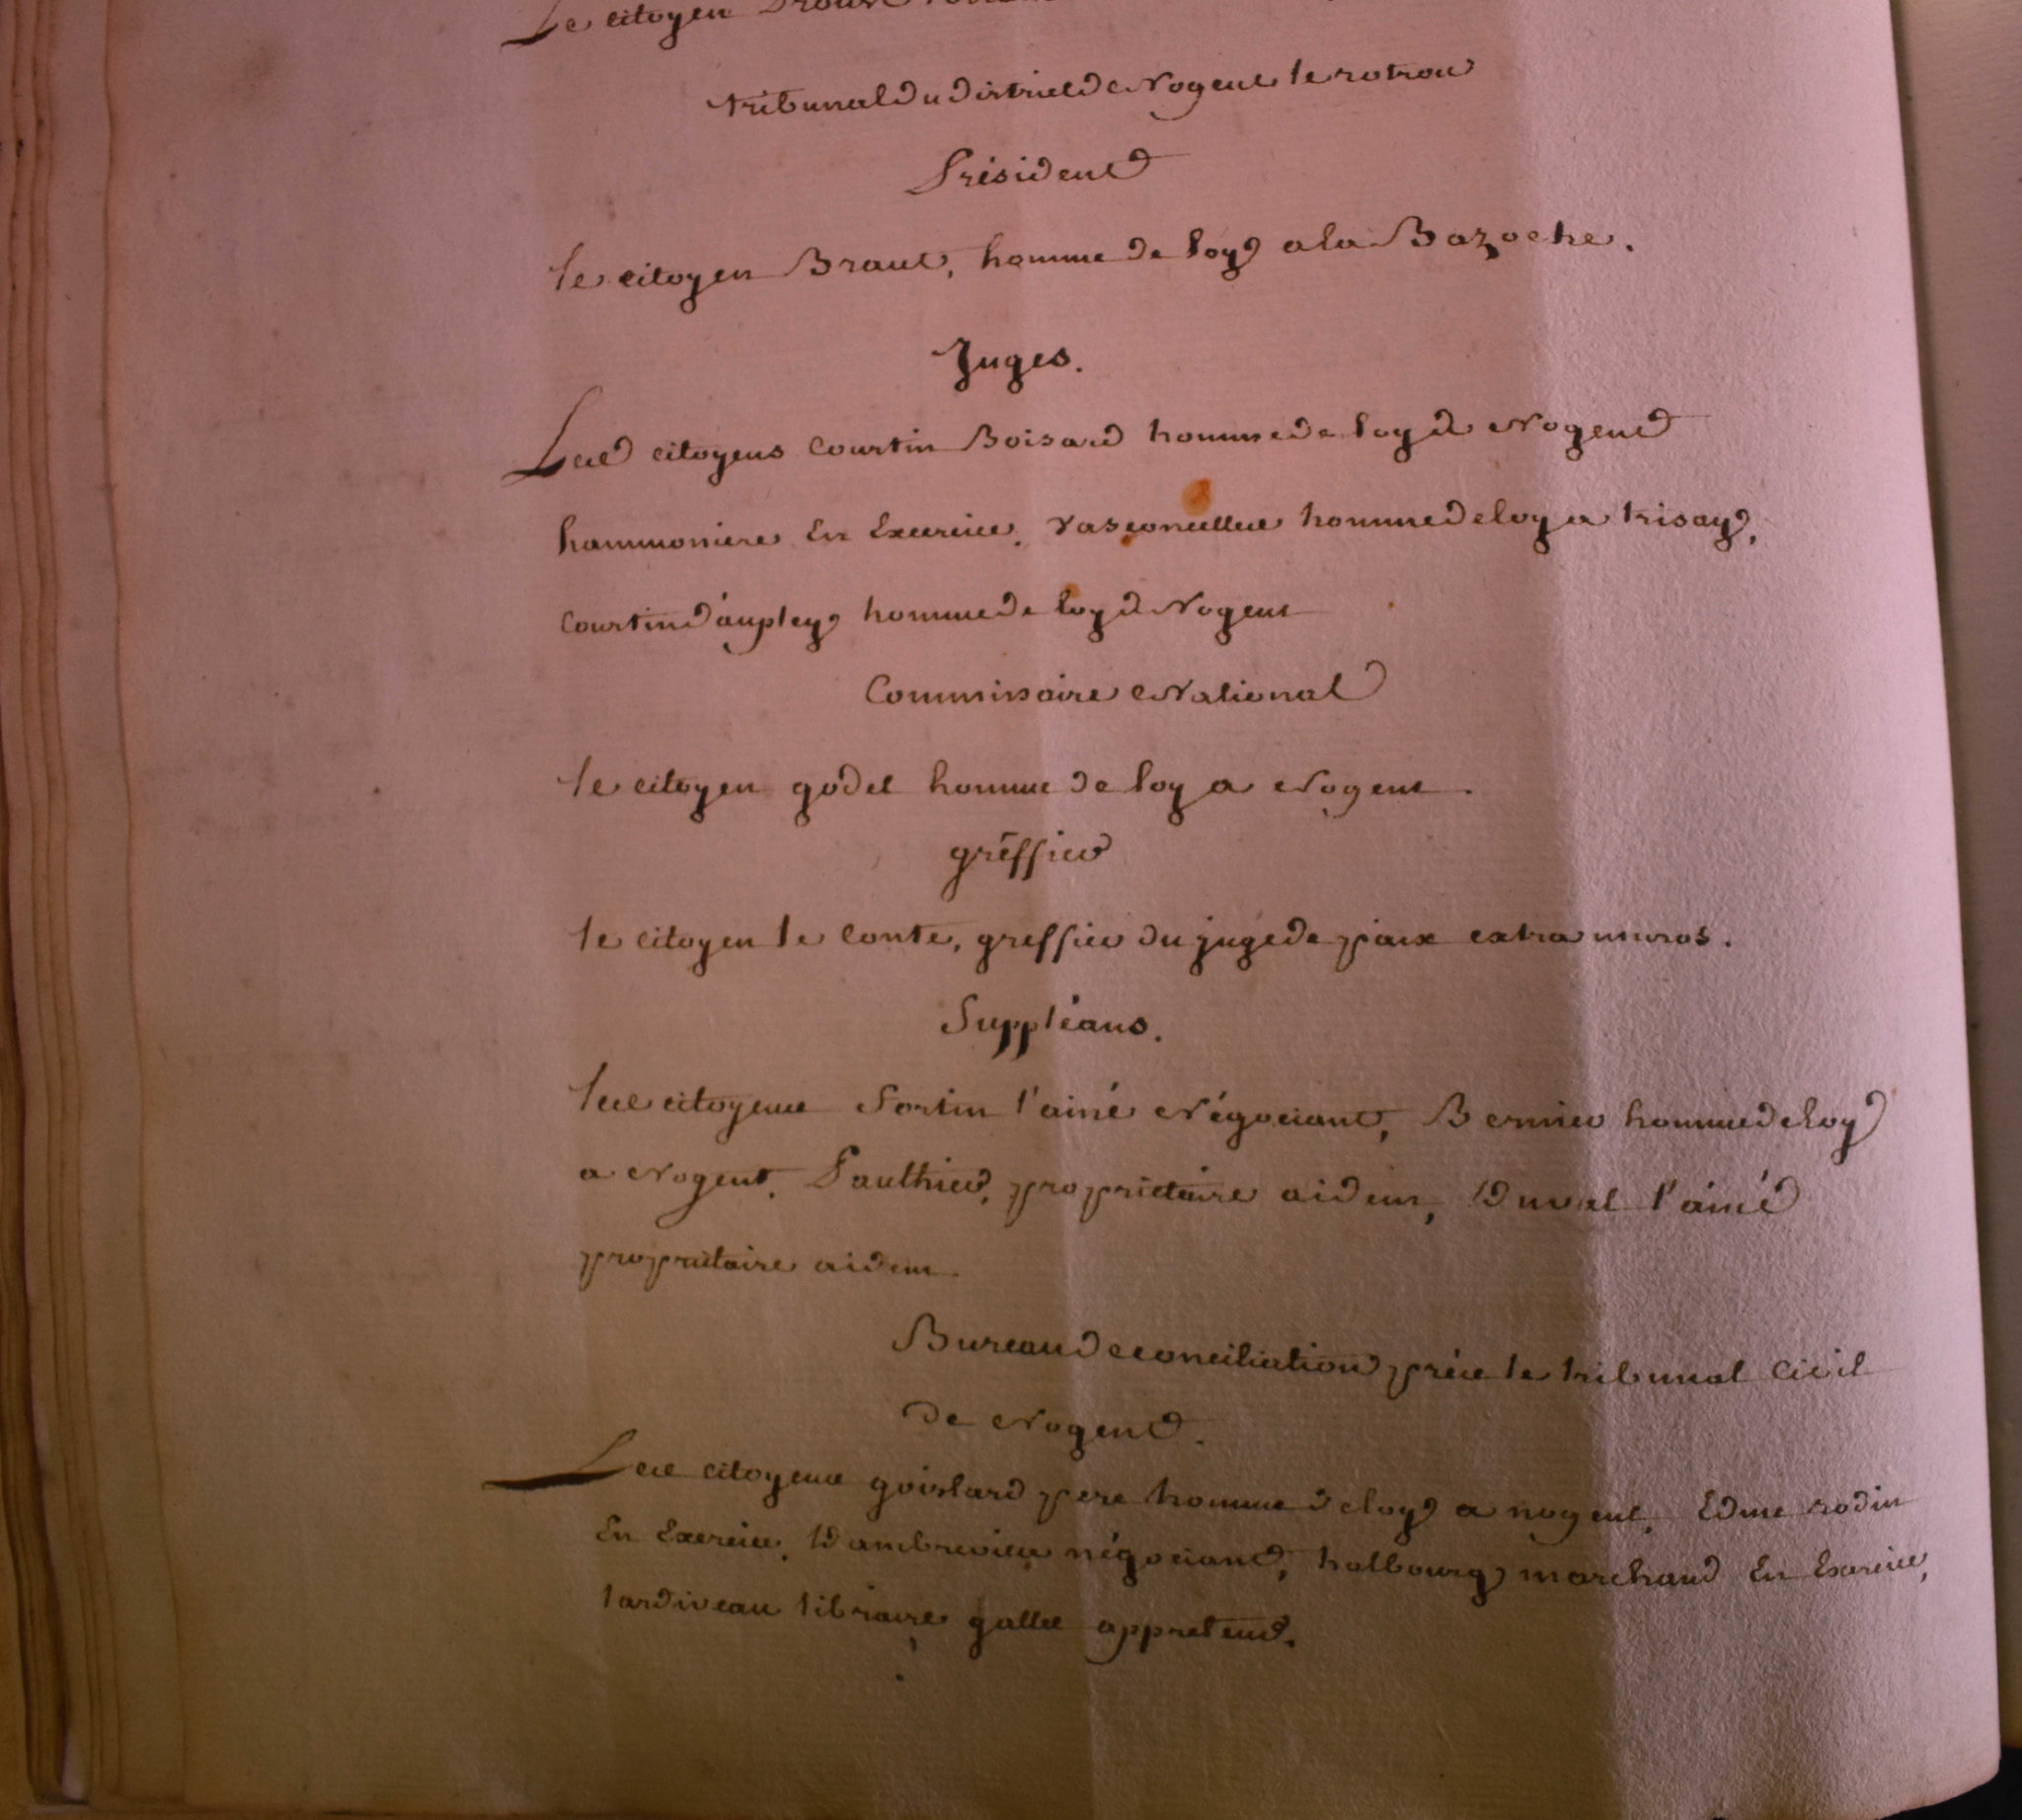 Le citoyen
tribunal du district de Nogent le rotrou
Président
le citoyen Braut, homme de loy a la Bazoche.
Juges.
Les citoyens Courtin Boisard homme de loy à Nogent
hammoniere En Exercice, Vasconcelles homme de loy a trisay,
Courtin d'aupley homme de loy à Nogent
Commissaire National
le citoyen godet homme de loy a Nogent.
gréffier
le citoyen le Conte, greffier du juge de paix extra muros.
Suppléans.
les citoyens Fortin l'ainé Négociant, Bernier homme de loy
a Nogent, Pauthier, proprietaire aidem, Duval l'ainé
propriétaire aidem.
Bureau de conciliation près le tribunal Civil
de Nogent.
Les citoyens goislard pere homme de loy a nogent, Edme rodin
En Exercice, négociant, halbourg marchand En Exercice,
tardiveau libraire gallet appreteur.